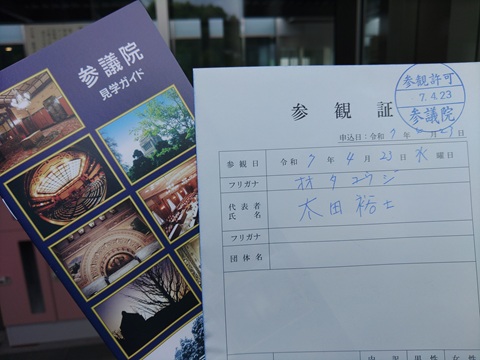 参議院
見学ガイド
参観許可
7.4.23
参議院
参観証
申込日:令和7年4月23日
参観日 令和7年4月23日水曜日
フリガナ オオタユウジ
代表者氏名 太田裕士
フリガナ
団体名
内訳 男性 女性